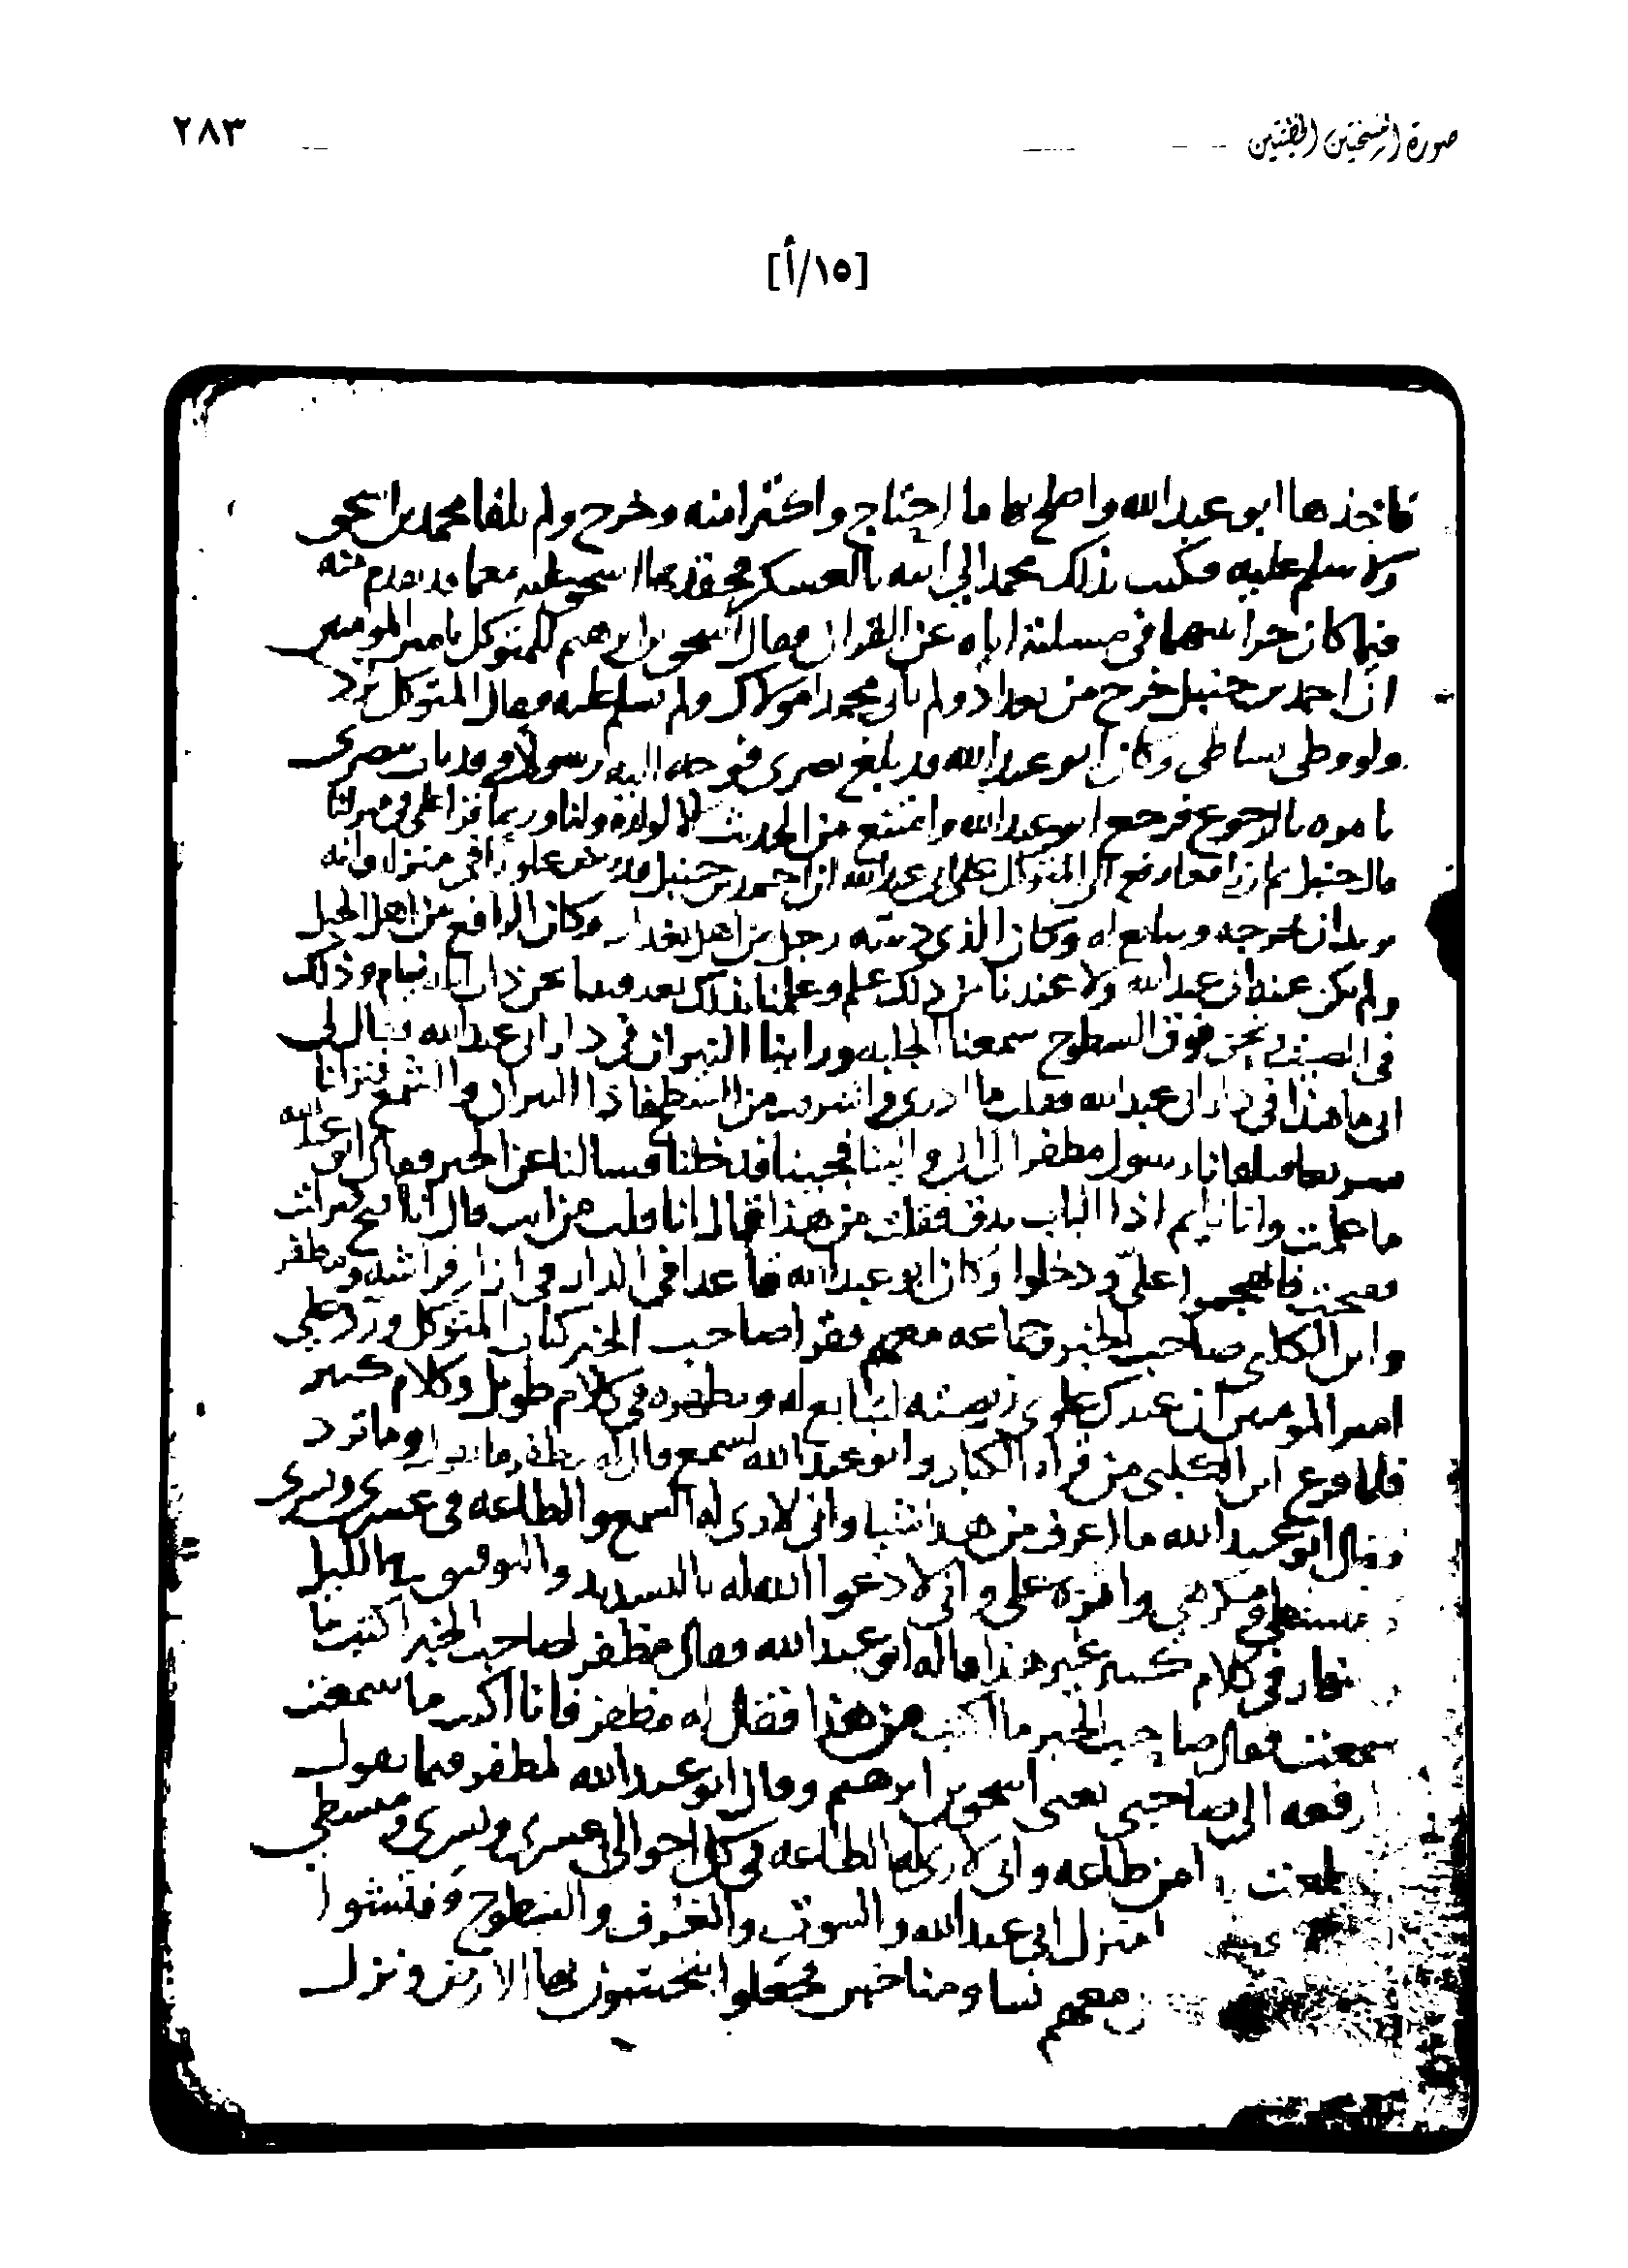 صورة النسختين الخطيتين
٢٨٣
[١٥/أ]
فاخذها ابو عبد الله واصلح بها ما احتاج واكترا منه وخرج ولم يلقا محمد بن اسحق
ولا سلم عليه فكتب بذلك محمد الى ابيه بالعسكر فحقدها اسحق عليه معما قد تقدم منه
فيما كان حرا بينهما في مسلته اياه عن القران فقال اسحق بن ابرهيم للمتوكل يا مير المومنين
ان احمد بن حنبل خرج من بغداد ولم يات محمدا مولاك ولم يسلم عليه فقال المتوكل يرد
ولو وطى بساطي وكان ابو عبد الله قد بلغ بصرى فوجه اليه رسولا وقد بات ببصرى
يامره بالرجوع فرجع ابو عبد الله وامتنع من الحديث الا لولده ولنا وربما قرا علي في منزلنا
قال حنبل ثم ان رافعا رفع الى المتوكل على ابي عبد الله ان احمد بن حنبل قد ربض علويا في منزله وانه
يريد ان يخرجه ويبايع له وكان الذي دسته رجل من اهل بغداد وكان الرافع من اهل الجبل
ولم يكن عند ابي عبد الله ولا عندنا من ذلك علم وعلمنا بذلك بعد فبينا نحن ذات ليلة نيام وذلك
في الصيف نحن فوق السطوح سمعنا الجلبه وراينا النيران في دار ابي عبد الله فقال لي
ابي ما هذا في دار ابي عبد الله فقلت ما ادري فاشرفت من السطح فاذا النيران والشمع فنزلنا
رسول مظفر الينا فجينا فدخلنا فسالنا عن الخبر فقال ابو عبد الله
ما علمت وانا نايم اذا الباب يدق فقلت من هذا فقال انا قلت من انت قال انا افتح
ففتحت فهجموا علي ودخلوا وكان ابو عبد الله قاعدا في الدار في ازار فراشه ومظفر
وابن الكلبي صاحب الخبر وجماعه معهم فقرا صاحب الخبر كتاب المتوكل ورد على
امير المومنين ان عندك علوي ربصته لتبايع له وتظهره في كلام طويل وكلام كثير
فلما فرغ ابن الكلبي من قراة الكتاب وابو عبد الله يسمع قال له مظفر ما تقول وما ترد
فقال ابو عبد الله ما اعرف من هذا شيا واني لارى له السمع والطاعه في عسري ويسري
ومنشطي ومكرهي واثره علي واني لادعوا الله له بالتسديد والتوفيق بالليل
والنهار في كلام كثير غير هذا قاله ابو عبد الله فقال مظفر لصاحب الخبر اكتب ما
سمعت فقال صاحب الخبر ما اكتب من هذا فقال له مظفر فانا اكتب ما سمعت
ارفعه الى صاحبي يعني اسحق بن ابرهيم وقال ابو عبد الله لمظفر فيما يقول
من طاعه واني لارى له الطاعه في كل احوالي عسري ويسري ومنشطي
منزل ابي عبد الله والبيوت والغرف والسطوح وفتشوا
معهم نسا ومناخس فجعلوا ينخسون بها الارض ونزل